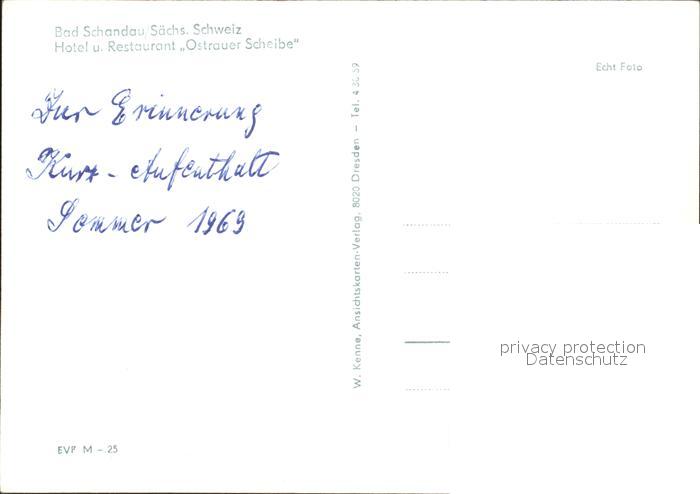 Bad Schandau/Sächs. Schweiz
Hotel u. Restaurant „Ostrauer Scheibe"
Echt Foto
Zur Erinnerung
Kurz - Aufenthalt
Sommer 1969
W. Kenne, Ansichtskarten-Verlag, 8020 Dresden — Tel. 4 30 59
privacy protection
Datenschutz
EVP M -.25